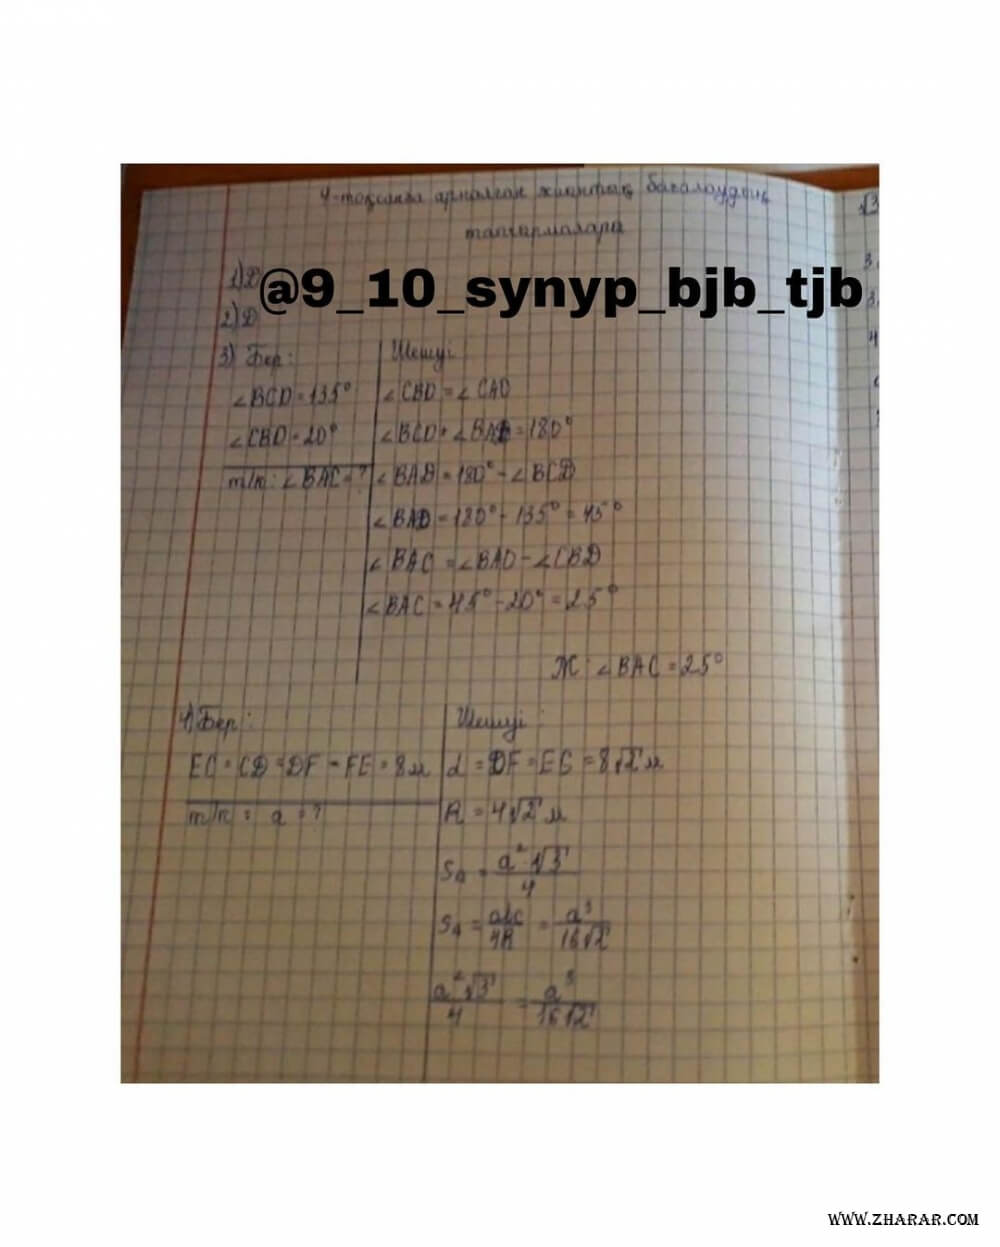 4-тоқсанға арналған жиынтық бағалаудың
тапсырмалары
@9_10_synyp_bjb_tjb
1) D
2) D
3) Бер:
∠BCD=135°
∠CBD=20°
т/к: ∠BAC=?
Шешуі
∠CBD=∠CAD
∠BCD+∠BAD=180°
∠BAD=180°-∠BCD
∠BAD=180°-135°=45°
∠BAC=∠BAD-∠CBD
∠BAC=45°-20°=25°
Ж: ∠BAC=25°
4) Бер:
EC=CD=DF=FE=8м
т/к: a=?
Шешуі:
d=DF=EC=8√2 м
R=4√2 м
S₄=a²√3/4
S₄=abc/4R=a³/16√2
a²√3/4=a³/16√2
√3
3.
3.
4
WWW.ZHARAR.COM